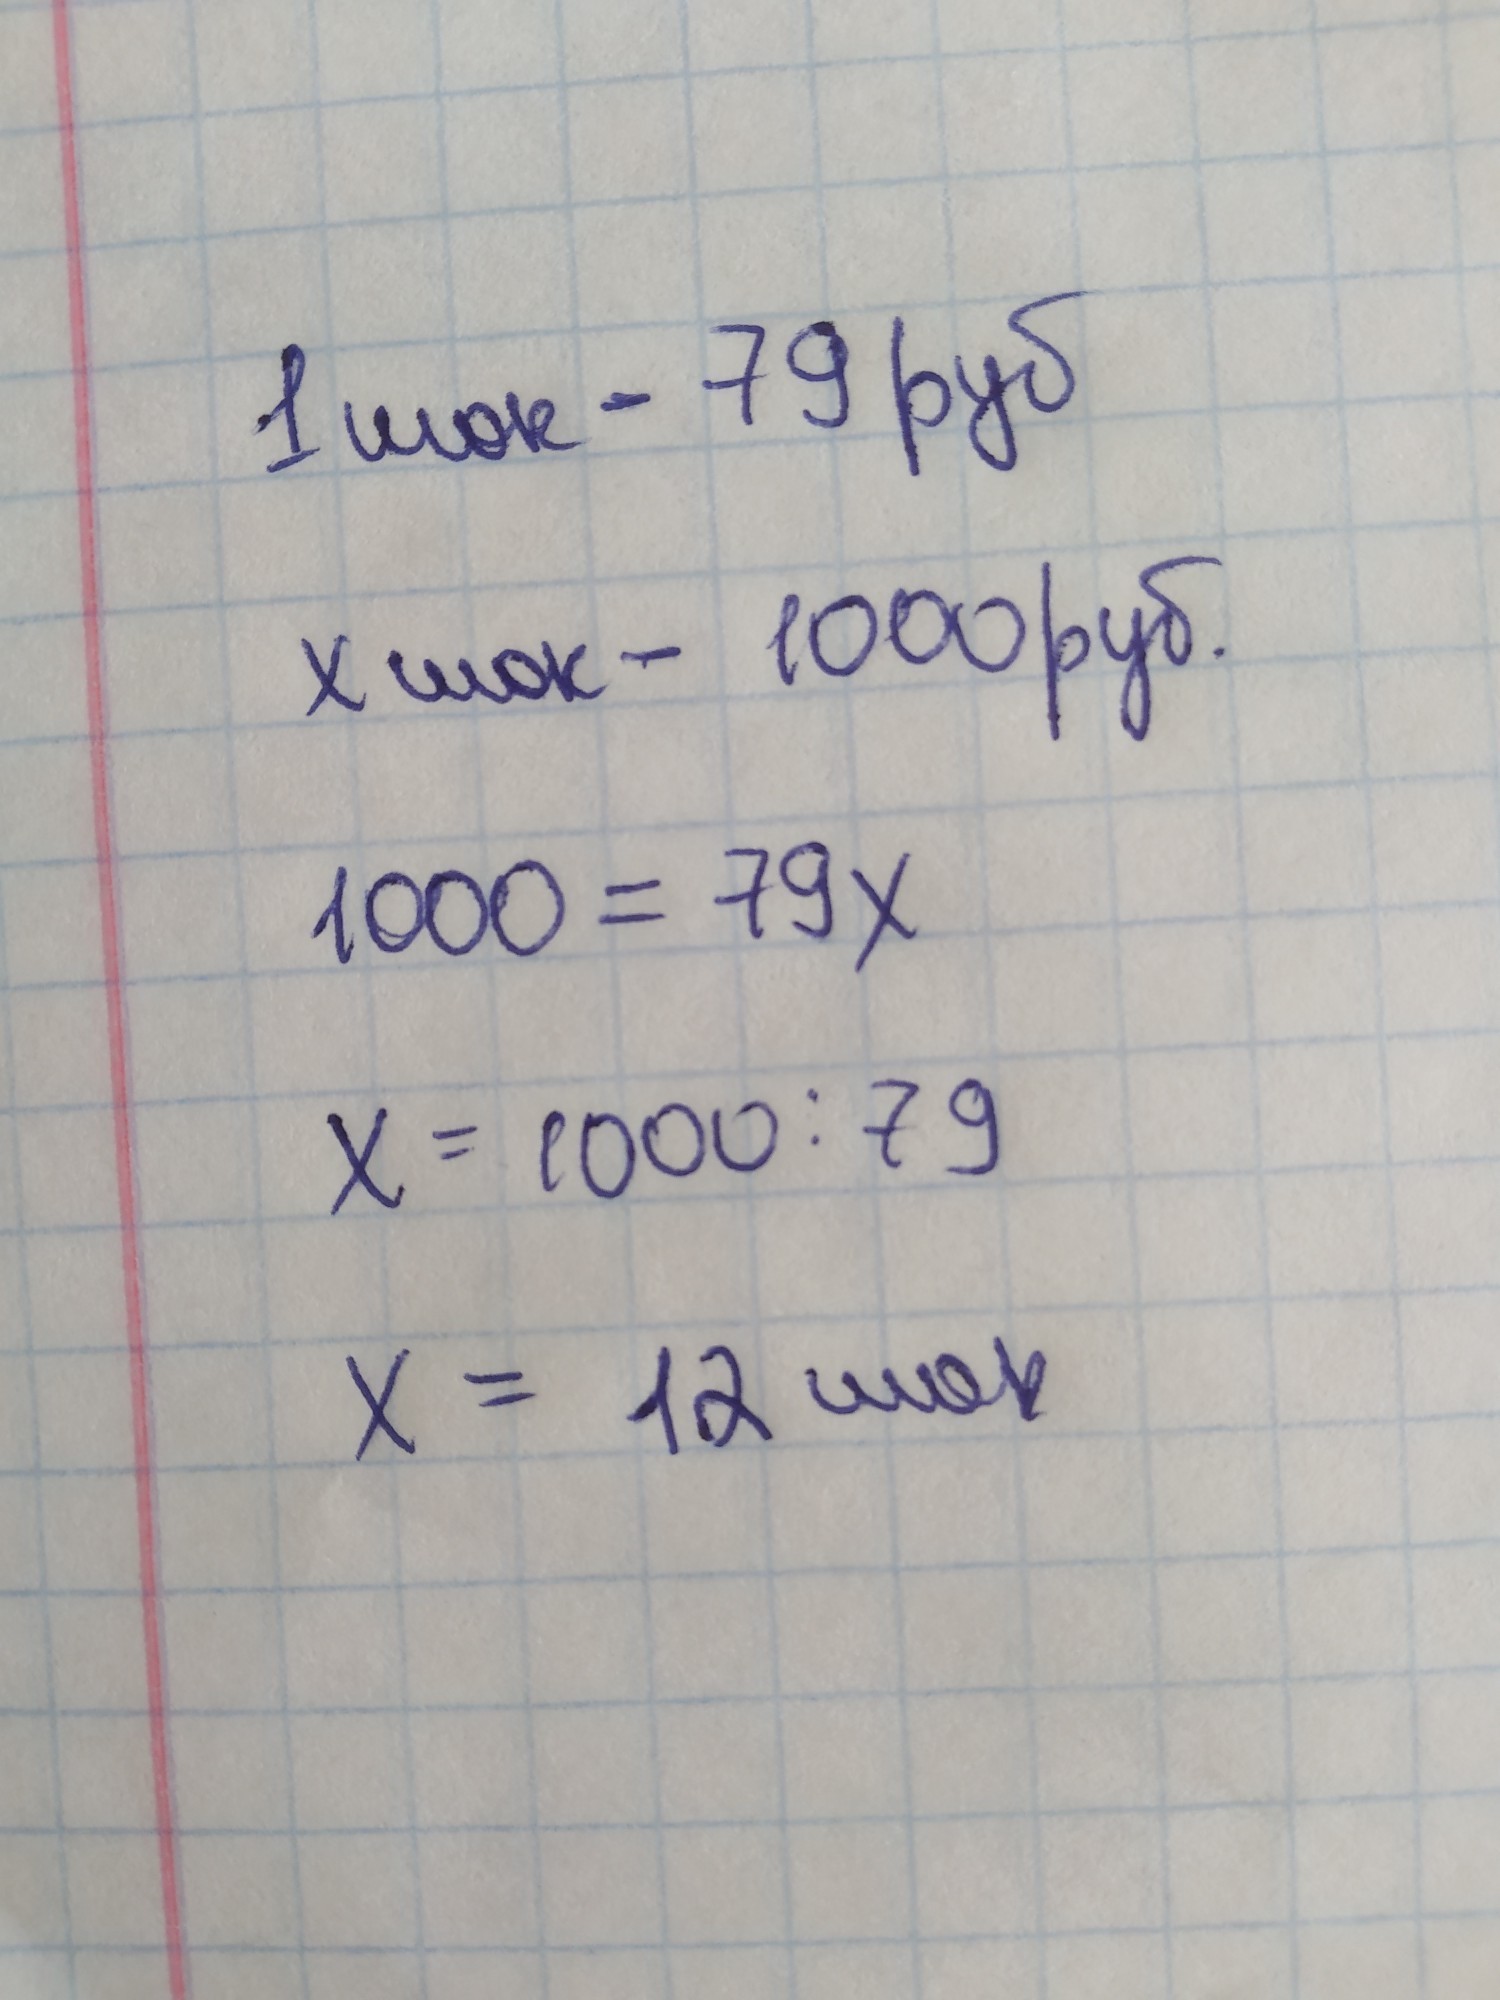 1 шок - 79 руб
x шок - 1000 руб.
1000 = 79x
x = 1000 : 79
x = 12 шок